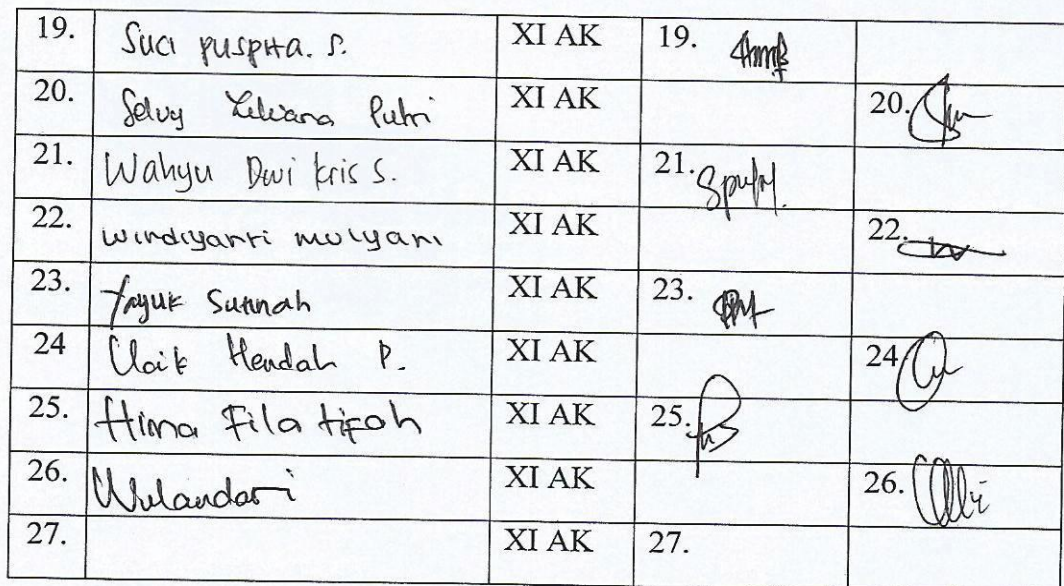 19. Suci puspita. S. XI AK 19.
20. Selvy Liliana Putri XI AK 20.
21. Wahyu Dwi kris S. XI AK 21.
22. windiyarti mulyani XI AK 22.
23. Yayuk Sunnah XI AK 23.
24 Ulaik Hendah P. XI AK 24
25. Hima Fila tifah XI AK 25.
26. Wulandari XI AK 26.
27. XI AK 27.